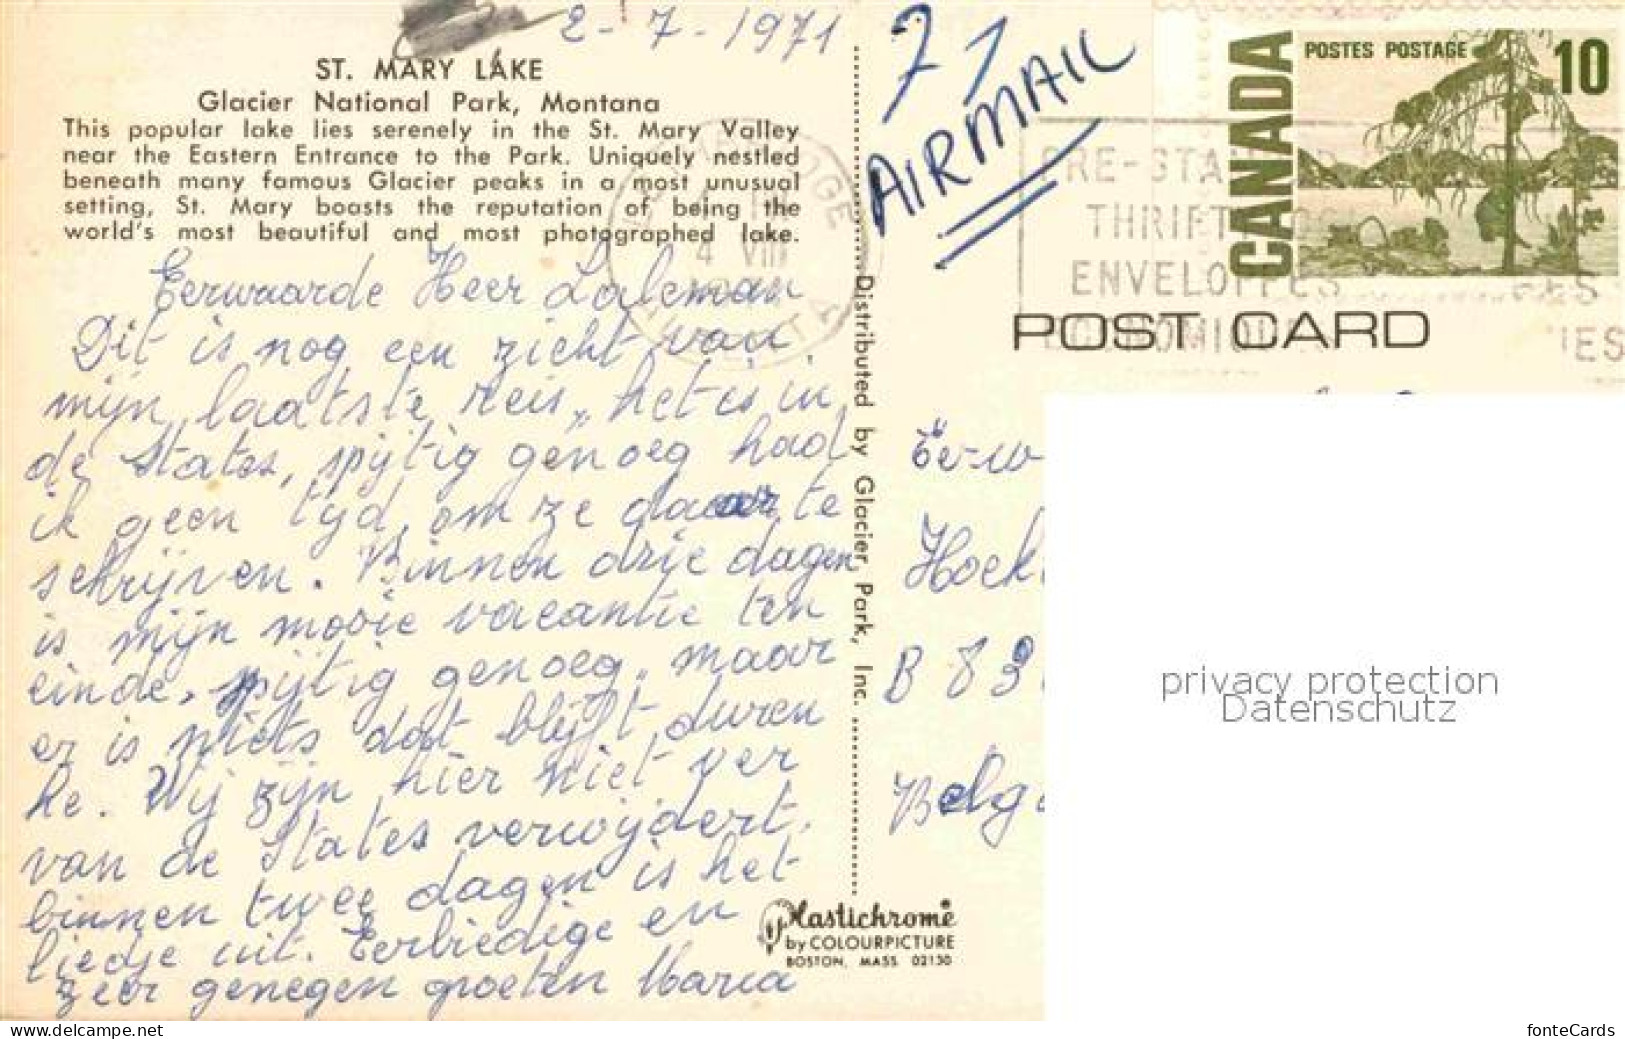 2-7-1971
ST. MARY LAKE
Glacier National Park, Montana
This popular lake lies serenely in the St. Mary Valley
near the Eastern Entrance to the Park. Uniquely nestled
beneath many famous Glacier peaks in a most unusual
setting, St. Mary boasts the reputation of being the
world's most beautiful and most photographed lake.
Eerwaarde Heer Laleman
Dit is nog een zicht van
mijn laatste reis, het is in
de States, spijtig genoeg had
ik geen tijd, om ze daar te
schrijven. Binnen drie dagen
is mijn mooie vacantie ten
einde, spijtig genoeg, maar
er is niets dat blijft duren
he. Wij zijn hier niet ver
van de States verwijdert,
binnen twee dagen is het
liedje uit. Eerbiedige en
zeer genegen groeten Maria
Distributed by Glacier Park, Inc.
Plastichrome®
by COLOURPICTURE
BOSTON, MASS. 02130
AIRMAIL
CANADA
POSTES POSTAGE
10
4 VIII
THRIFT
ENVELOPPES
POST CARD
Eerw
Hoek
B 83
Belg
privacy protection
Datenschutz
fonteCards